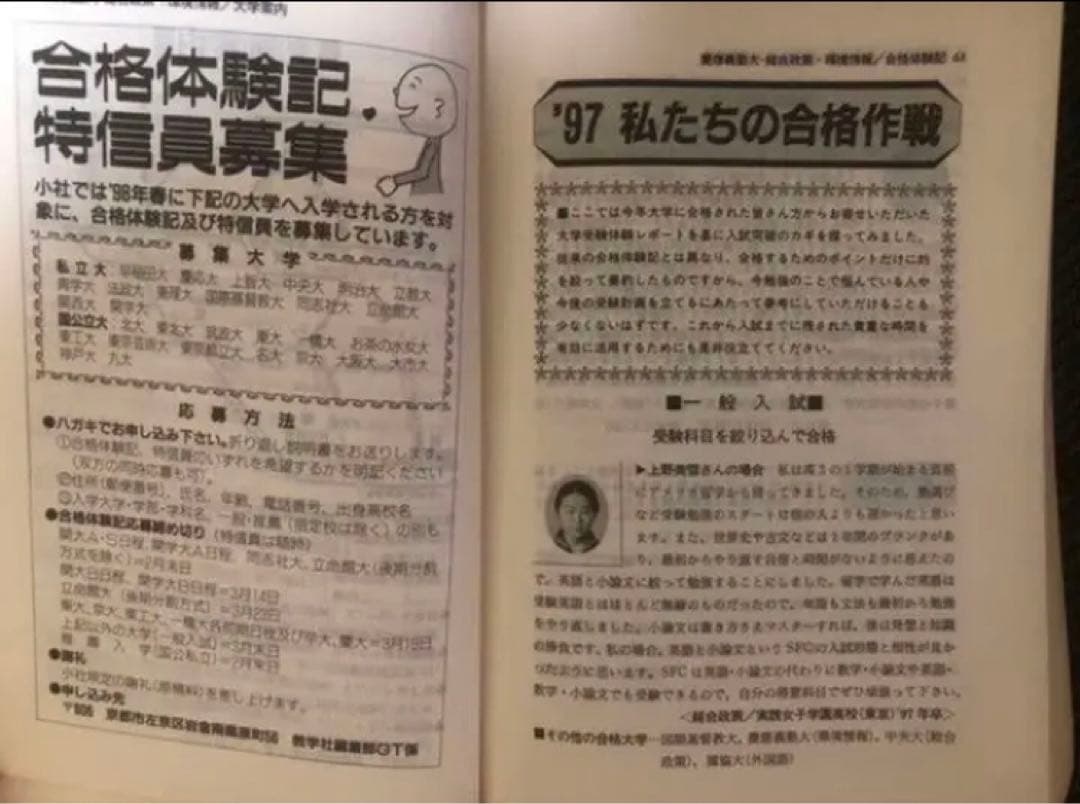 合格体験記
特信員募集
小社では'98年春に下記の大学へ入学される方を対
象に、合格体験記及び特信員を募集しています。
募集大学
私立大 早稲田大 慶応大 上智大 中央大 明治大 立教大
青学大 法政大 東理大 国際基督教大 同志社大 立命館大
関西大 関学大
国公立大 北大 東北大 筑波大 東大 一橋大 お茶の水女大
東工大 東京芸術大 東京都立大 名大 京大 大阪大 大市大
神戸大 九大
応募方法
●ハガキでお申し込み下さい。折り返し説明書をお送りします。
①合格体験記、特信員のいずれを希望するかを明記ください
(双方の同時応募も可)。
②住所(郵便番号)、氏名、年齢、電話番号、出身高校名
③入学大学・学部・学科名、一般・推薦(指定校は除く)の別も
●合格体験記応募締め切り(特信員は随時)
関大A・S日程、関学大A日程、同志社大、立命館大(後期分割
方式を除く)=2月末日
関大B日程、関学大B日程=3月14日
立命館大(後期分割方式)=3月22日
東大、京大、東工大、一橋大各前期日程及び早大、慶大=3月18日
上記以外の大学(一般入試)=3月末日
推薦入学(国公私立)=2月末日
●謝礼
小社規定の謝礼(原稿料)を差し上げます。
●申し込み先
〒606 京都市左京区岩倉南桑原町56 教学社編集部GT係
慶應義塾大-総合政策・環境情報/合格体験記 63
'97 私たちの合格作戦
■ここでは今年大学に合格された皆さん方からお寄せいただいた
大学受験体験レポートを基に入試突破のカギを探ってみました。
従来の合格体験記とは異なり、合格するためのポイントだけに的
を絞って要約したものですから、今勉強のことで悩んでいる人や
今後の受験計画を立てるにあたって参考にしていただけることも
少なくないはずです。これから入試までに残された貴重な時間を
有効に活用するためにも是非役立ててください。
■一般入試■
受験科目を絞り込んで合格
の場合 私は高3の1学期が始まる直前
にアメリカ留学から帰ってきました。そのため、塾選び
など受験勉強のスタートは他の人よりも遅かったと思い
ます。また、世界史や古文などは1年間のブランクがあ
り、最初からやり直す自信と時間がないように思えたの
で、英語と小論文に絞って勉強することにしました。留学で学んだ英語は
受験英語とはほとんど無縁のものだったので、単語も文法も最初から勉強
をやり直しました。小論文は書き方さえマスターすれば、後は発想と知識
の勝負です。私の場合、英語と小論文というSFCの入試形態と相性が良か
ったように思います。SFCは英語・小論文の代わりに数学・小論文や英語・
数学・小論文でも受験できるので、自分の得意科目でぜひ頑張って下さい。
<総合政策/実践女子学園高校(東京)'97年卒>
■その他の合格大学…国際基督教大、慶應義塾大(環境情報)、中央大(総合
政策)、獨協大(外国語)